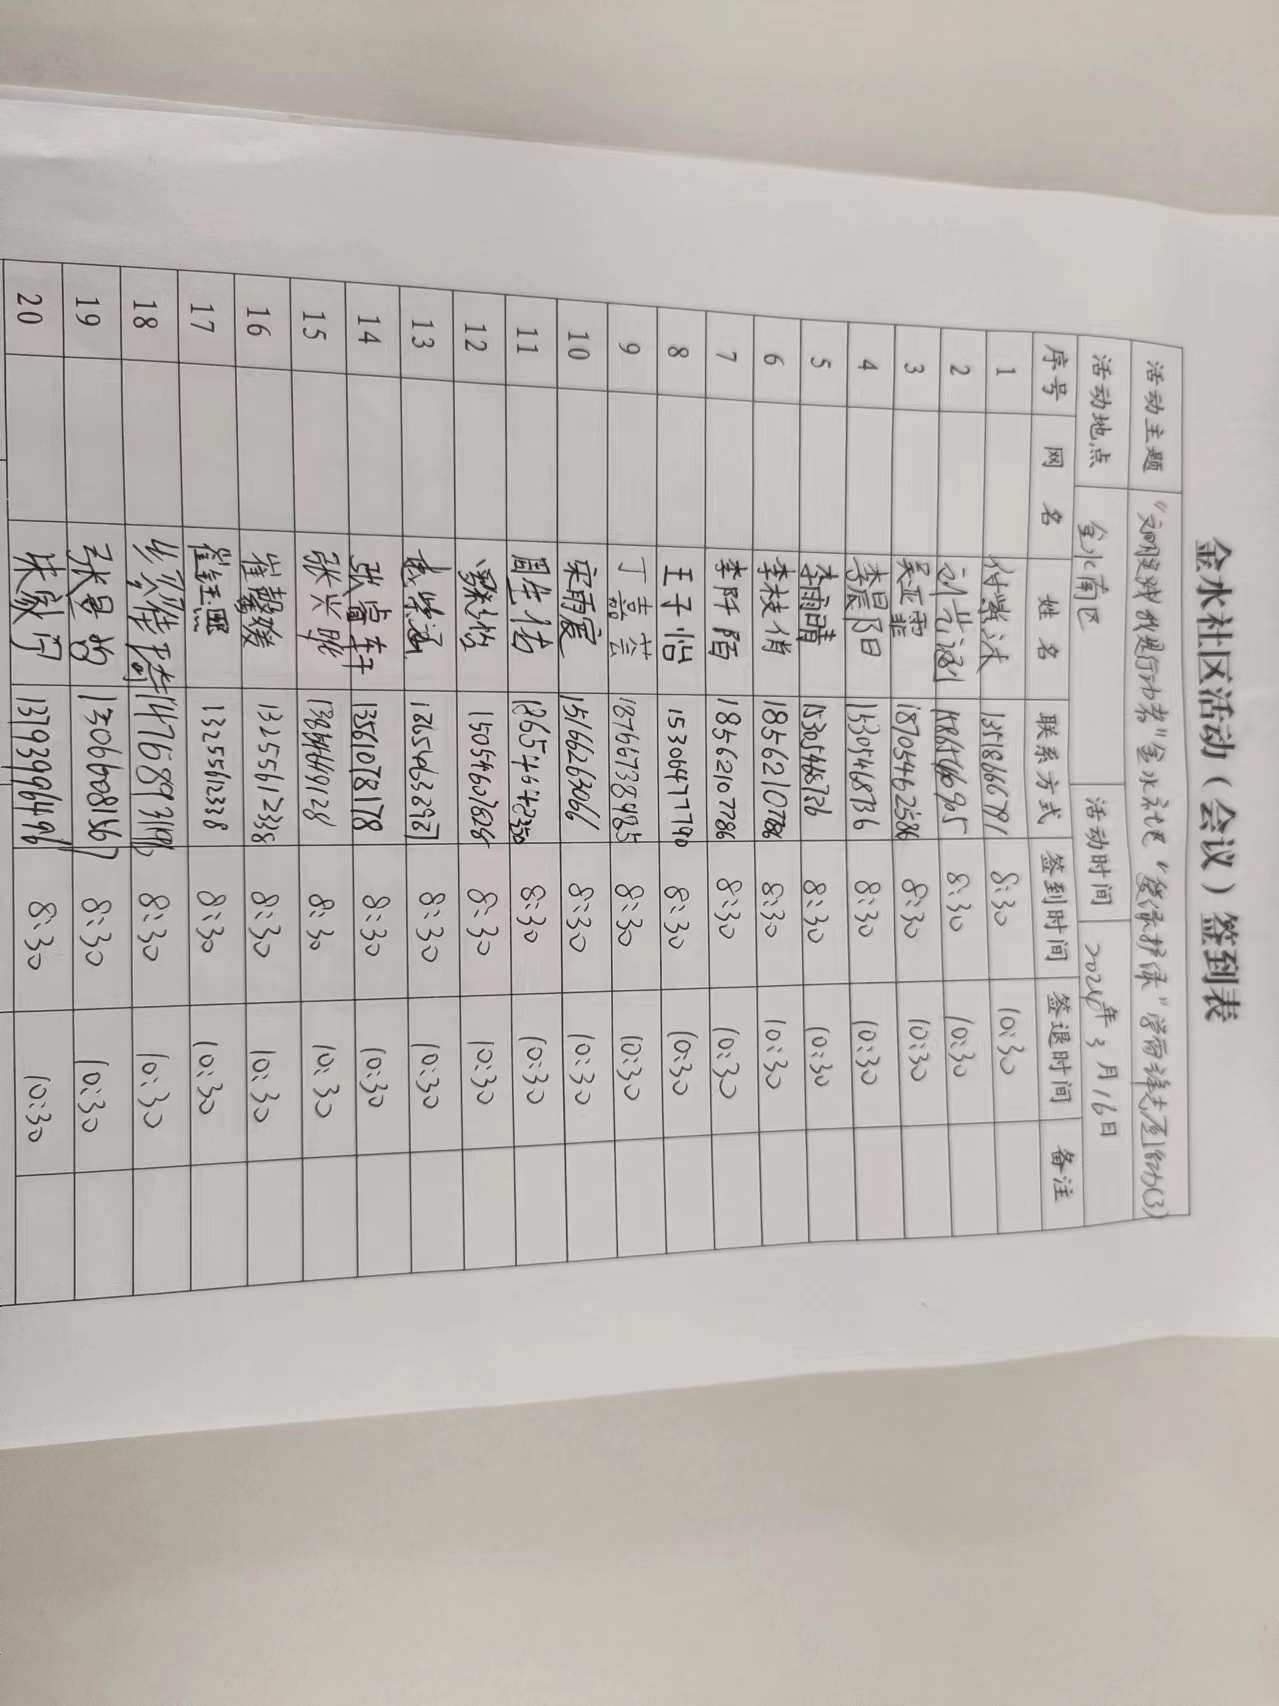 金水社区活动（会议）签到表
活动主题 "文明实践我是行动者"金水社区"爱绿护绿"学雷锋志愿活动(3)
活动地点 金水南区 活动时间 2024年3月16日
序号 网名 姓名 联系方式 签到时间 签退时间 备注
1 13518166791 8:30 10:30
2 8:30 10:30
3 吴亚霏 18705462586 8:30 10:30
4 李晨阳 15305468736 8:30 10:30
5 李雨晴 15305468736 8:30 10:30
6 李枝俏 18562107786 8:30 10:30
7 李阡陌 18562107786 8:30 10:30
8 王子怡 15306477790 8:30 10:30
9 丁嘉芸 18766738485 8:30 10:30
10 宋雨宸 15166263066 8:30 10:30
11 8:30 10:30
12 15054607626 8:30 10:30
13 8:30 10:30
14 张睿轩 13561078178 8:30 10:30
15 张兴 8:30 10:30
16 崔馨媛 13255612338 8:30 10:30
17 崔钰熙 13255612338 8:30 10:30
18 8:30 10:30
19 张昊 13066008156 8:30 10:30
20 13793996496 8:30 10:30